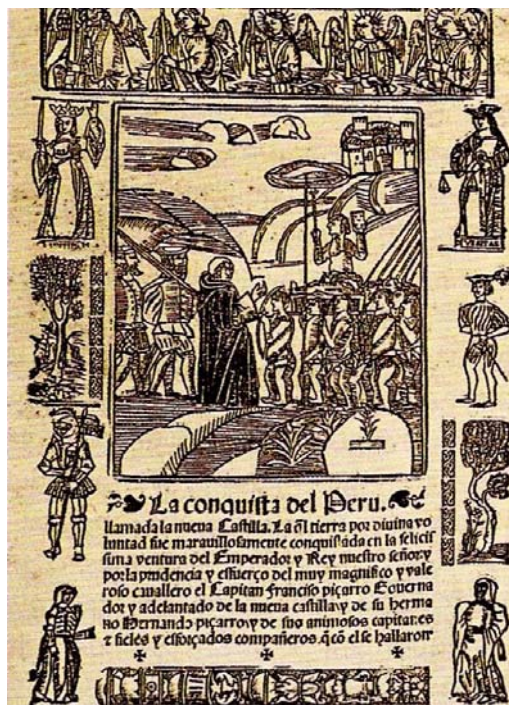 La conquista del Peru.
llamada la nueua Castilla. La q̃l tierra por diuina vo
luntad fue marauillosamente conquistada en la felicis
sima ventura del Emperador y Rey nuestro señor y
por la prudencia y esfuerço del muy magnifico y vale
roso cauallero el Capitan Francisco piçarro Gouerna
dor y adelantado de la nueua castilla y de su herma
no Hernando piçarro y de sus animosos capitanes
z fieles y esforçados compañeros q̃ cõ el se hallaron